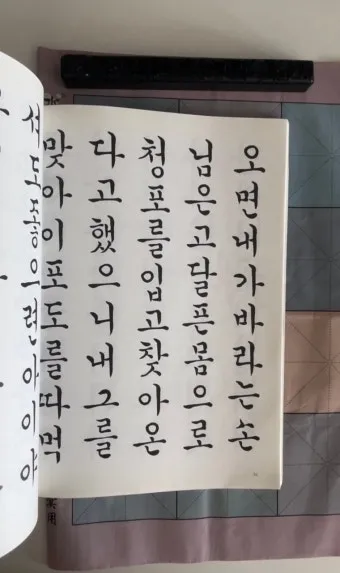 오면내가바라는손
님은고달픈몸으로
청포를입고찾아온
다고했으니내그를
맞아이포도를따먹
셔도좋으련아이야